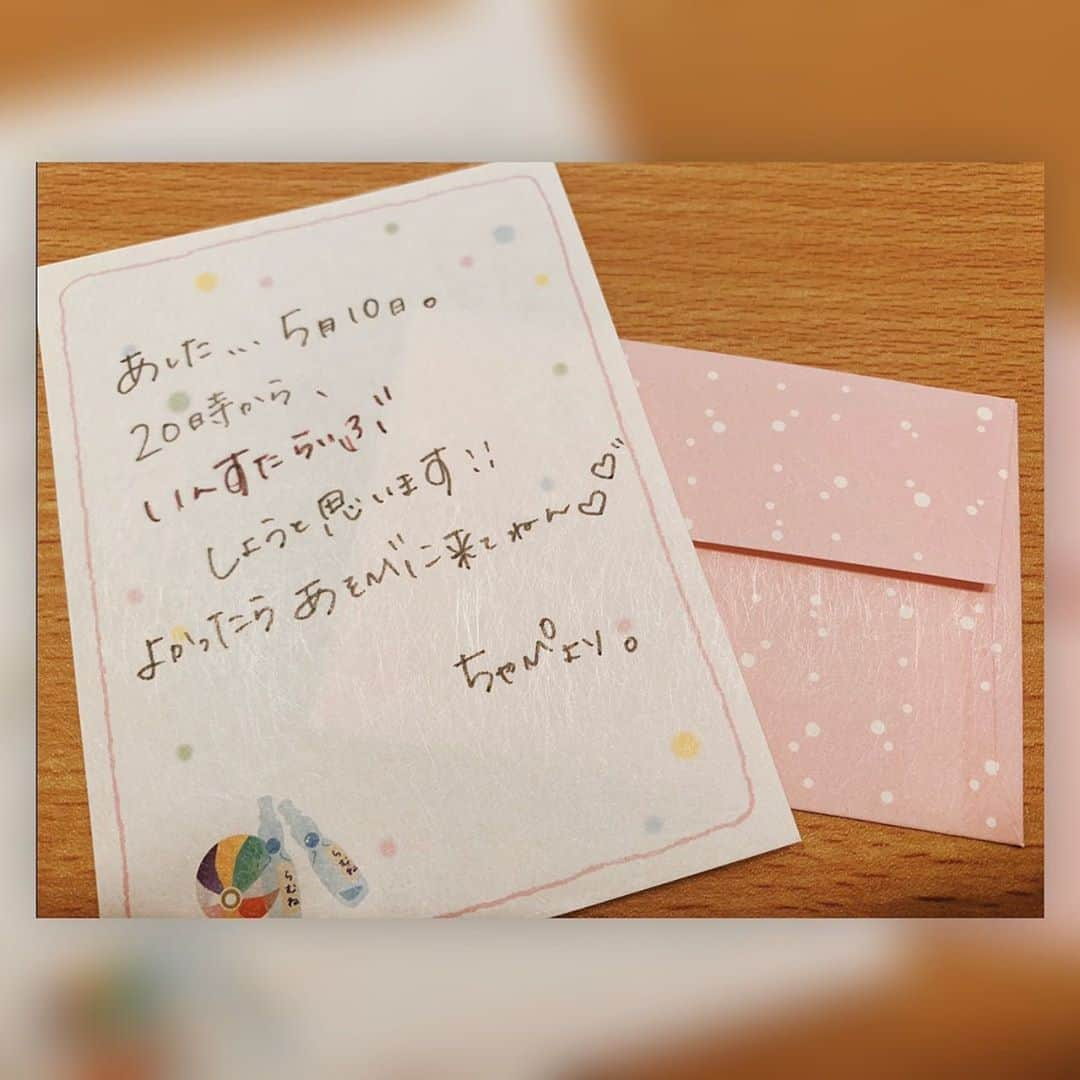 あした... 5月10日。
20時から、
いんすたらいぶ
しようと思います!!
よかったら あそびに来てねん♡♡
ちゃぴより。
らむね
らむね